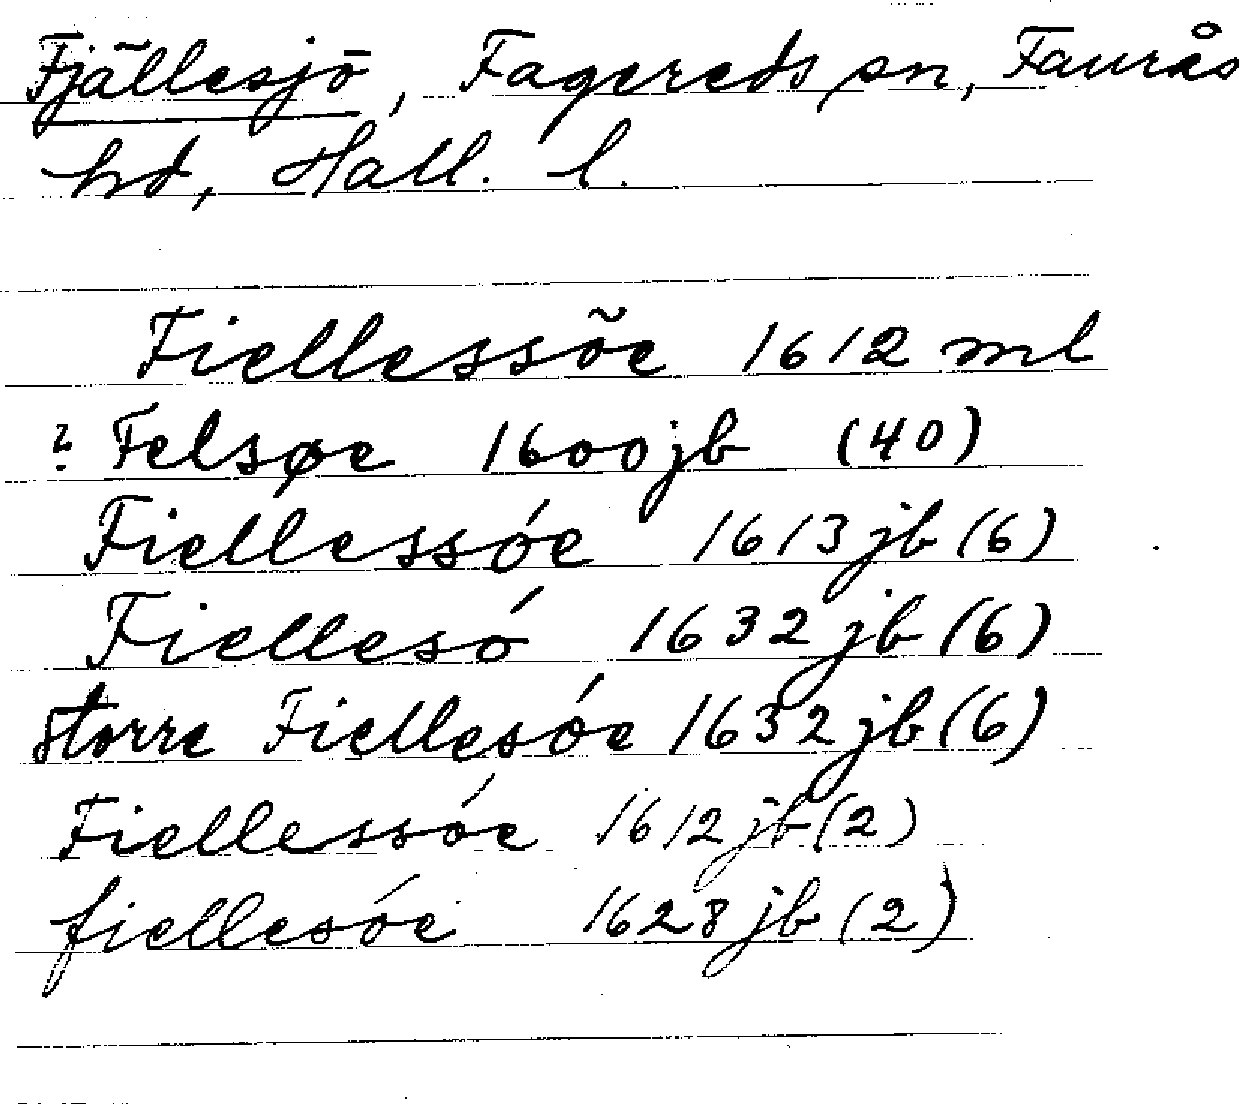 Fjällesjö, Fagereds sn, Faurås
hd, Hall. l.
Fiellessõe 1612 ml
? Felsøe 1600 jb (40)
Fiellessóe 1613 jb (6)
Fiellesó 1632 jb (6)
storre Fiellesóe 1632 jb (6)
Fiellessóe 1612 jb (2)
fiellesóe 1628 jb (2)